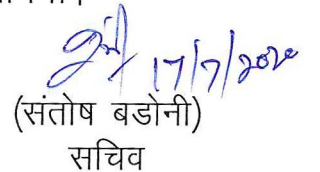 17/7/2020
(संतोष बडोनी)
सचिव